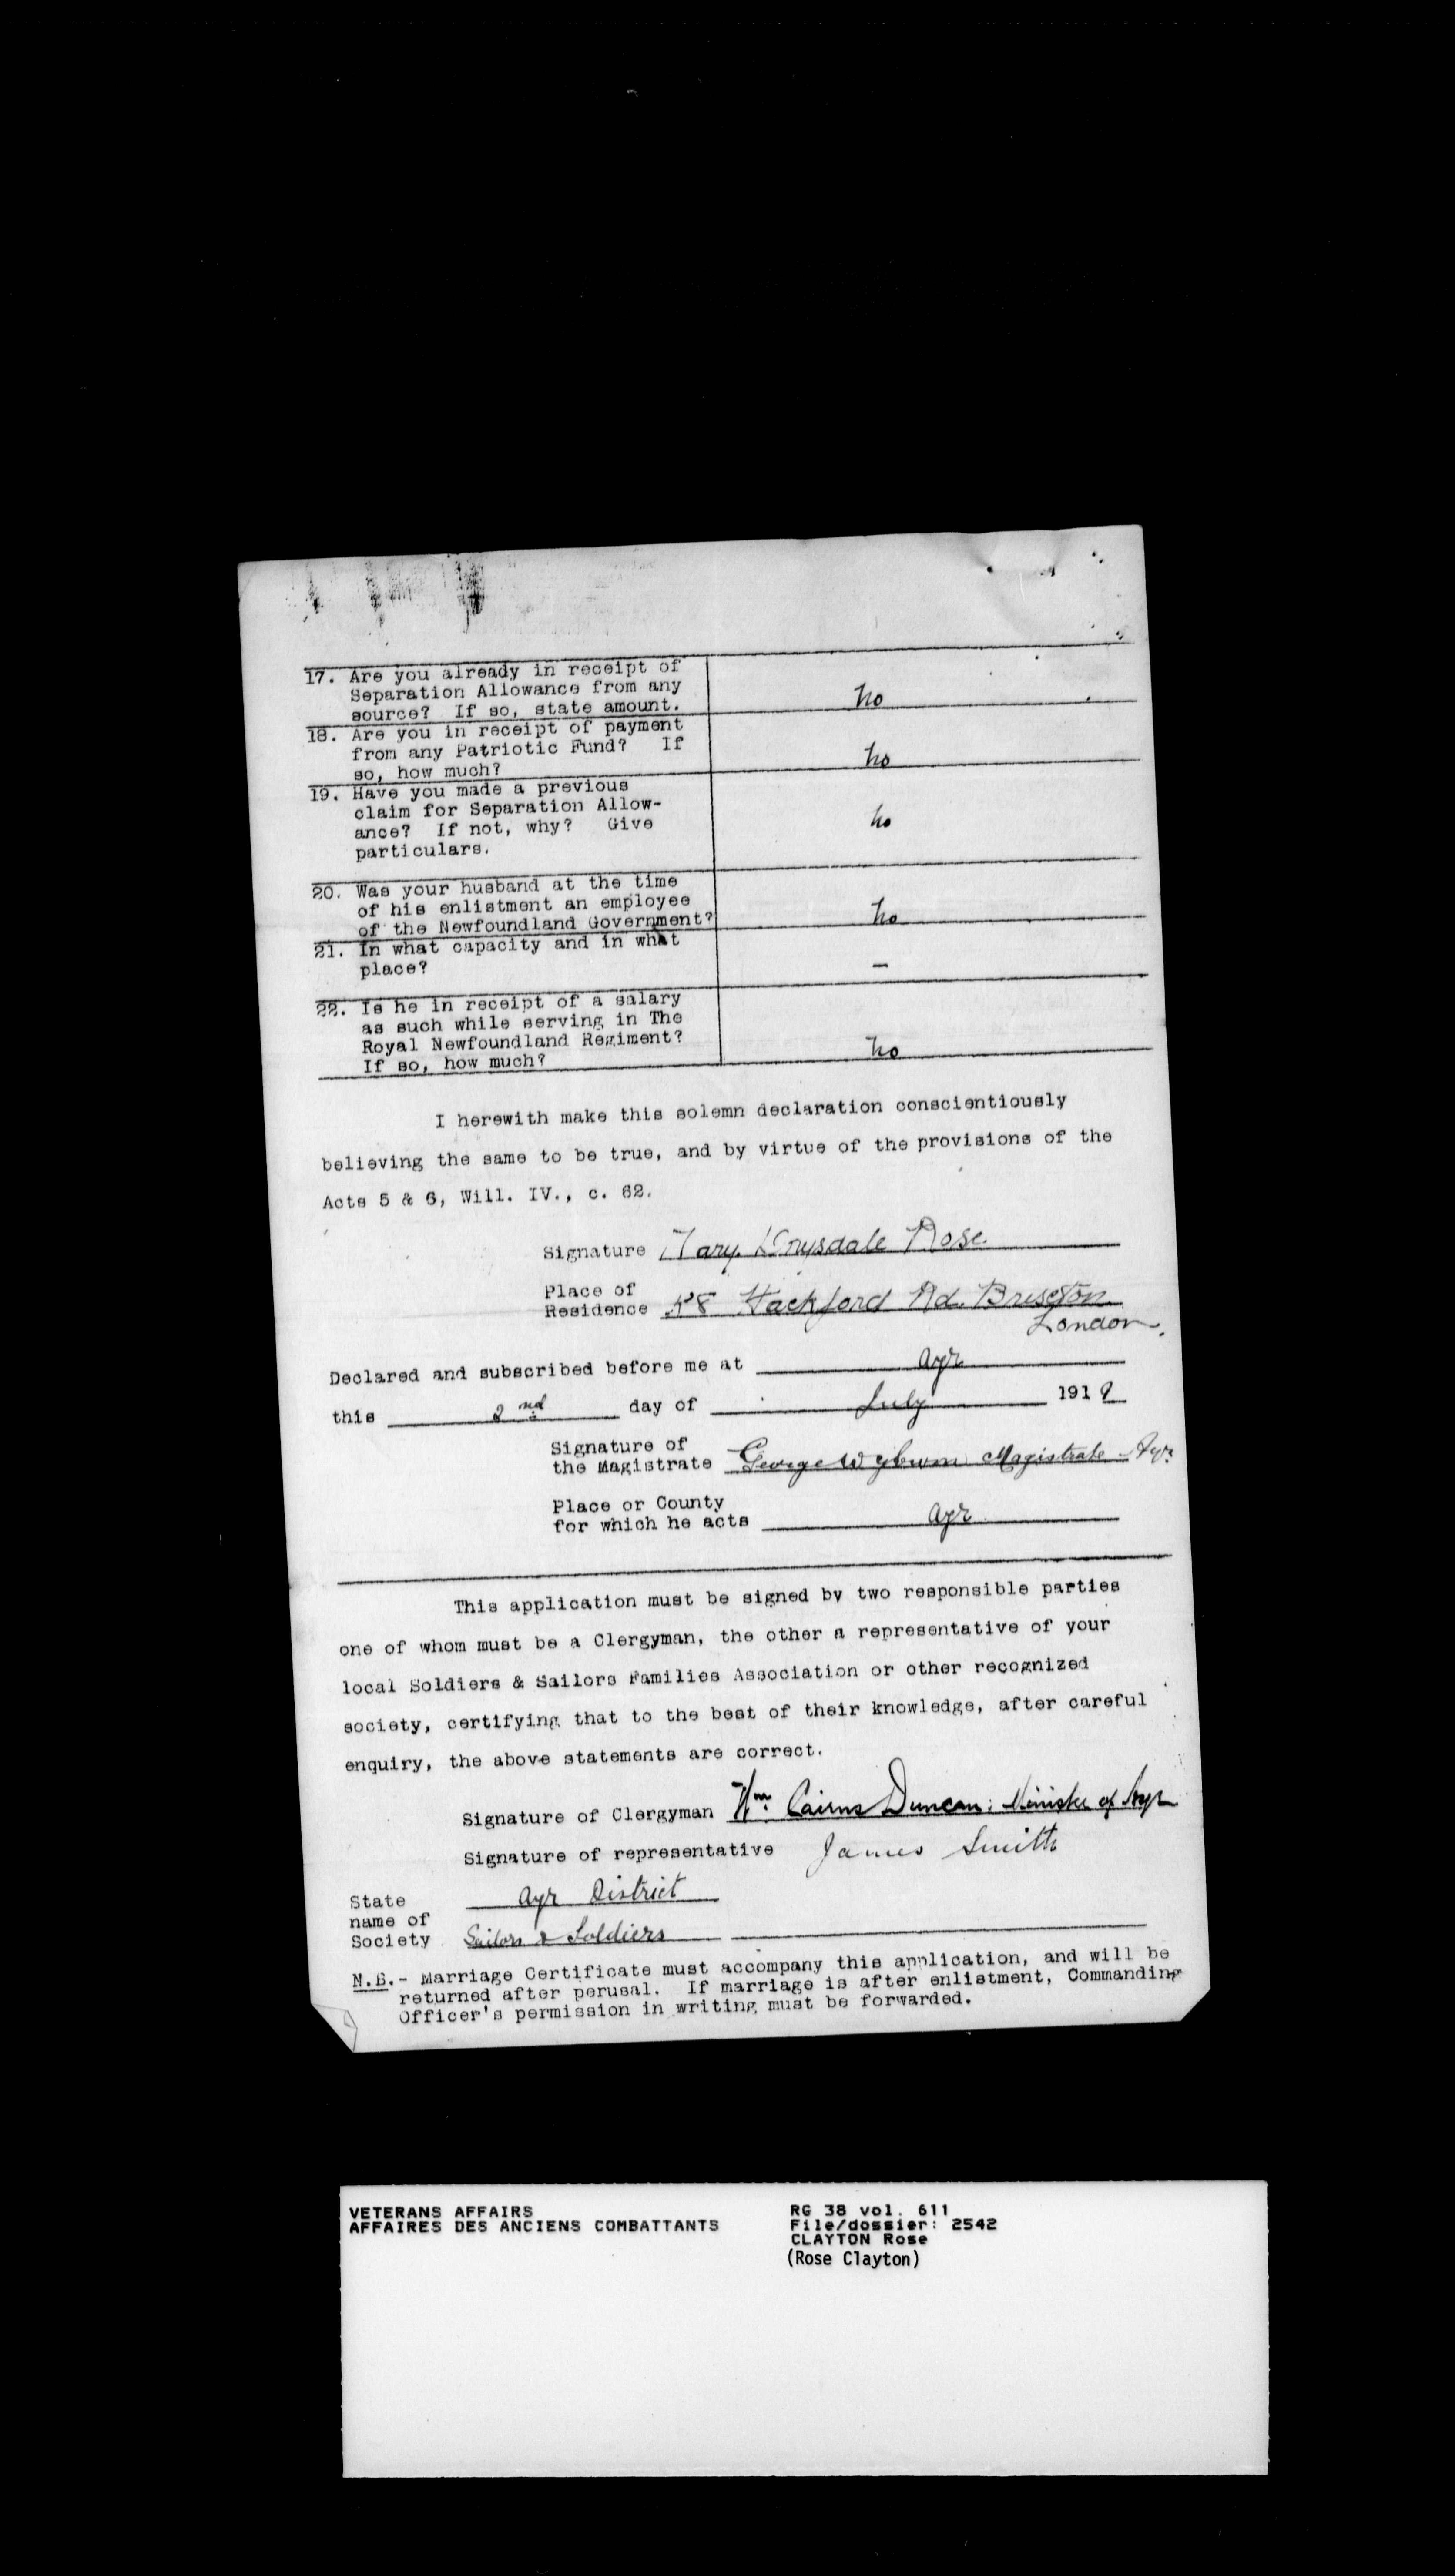 17. Are you already in receipt of
Separation Allowance from any
source? If so, state amount.
No
18. Are you in receipt of payment
from any Patriotic Fund? If
so, how much?
No
19. Have you made a previous
claim for Separation Allow-
ance? If not, why? Give
particulars.
No
20. Was your husband at the time
of his enlistment an employee
of the Newfoundland Government?
No
21. In what capacity and in what
place?
—
22. Is he in receipt of a salary
as such while serving in The
Royal Newfoundland Regiment?
If so, how much?
No
I herewith make this solemn declaration conscientiously
believing the same to be true, and by virtue of the provisions of the
Acts 5 & 6, Will. IV., c. 62.
Signature Mary Drysdale Rose
Place of
Residence Hackford Rd. Brixton
London.
Declared and subscribed before me at Ayr
this 2nd day of July 1919
Signature of
the Magistrate George Wyburn Magistrate Ayr
Place or County
for which he acts Ayr
This application must be signed by two responsible parties
one of whom must be a Clergyman, the other a representative of your
local Soldiers & Sailors Families Association or other recognized
society, certifying that to the best of their knowledge, after careful
enquiry, the above statements are correct.
Signature of Clergyman Wm. Cairns Duncan, Minister of Ayr
Signature of representative James Smith
State
name of
Society
Ayr District
Sailors & Soldiers
N.B.- Marriage Certificate must accompany this application, and will be
returned after perusal. If marriage is after enlistment, Commanding
Officer's permission in writing must be forwarded.
VETERANS AFFAIRS
AFFAIRES DES ANCIENS COMBATTANTS
RG 38 vol. 611
File/dossier: 2542
CLAYTON Rose
(Rose Clayton)